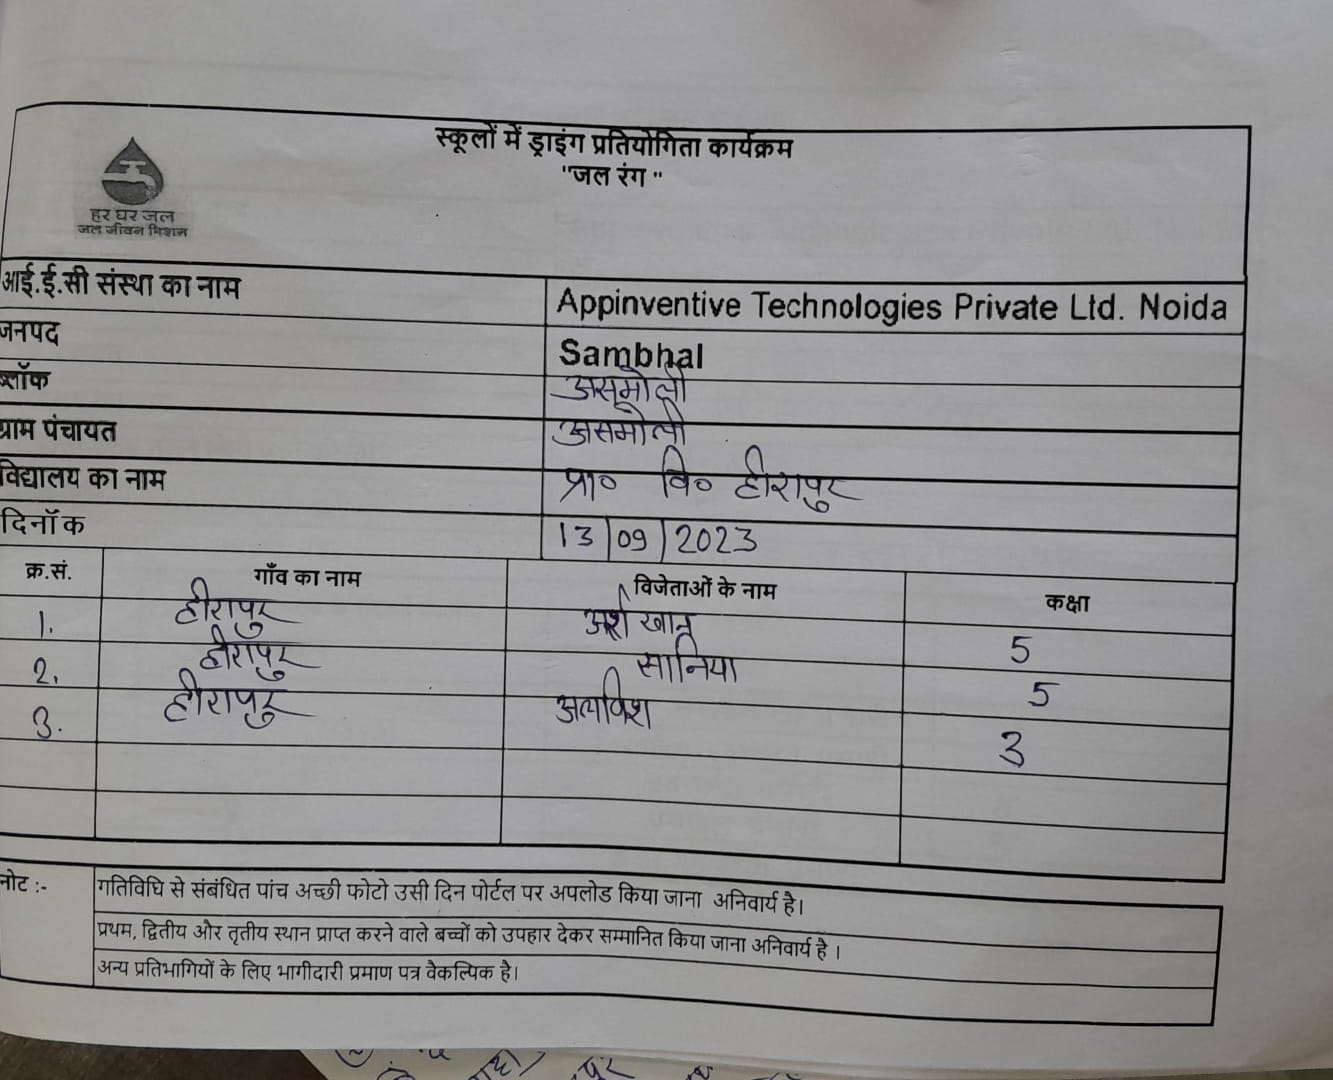 स्कूलों में ड्राइंग प्रतियोगिता कार्यक्रम
"जल रंग "
हर घर जल
जल जीवन मिशन
आई.ई.सी संस्था का नाम Appinventive Technologies Private Ltd. Noida
जनपद Sambhal
ब्लॉक असमोली
ग्राम पंचायत असमोली
विद्यालय का नाम प्रा० वि० हीरापुर
दिनॉक 13/09/2023
क्र.सं. गाँव का नाम विजेताओं के नाम कक्षा
1. हीरापुर अर्श खान 5
2. हीरापुर सानिया 5
3. हीरापुर अलविश 3
नोट :- गतिविधि से संबंधित पांच अच्छी फोटो उसी दिन पोर्टल पर अपलोड किया जाना अनिवार्य है।
प्रथम, द्वितीय और तृतीय स्थान प्राप्त करने वाले बच्चों को उपहार देकर सम्मानित किया जाना अनिवार्य है ।
अन्य प्रतिभागियों के लिए भागीदारी प्रमाण पत्र वैकल्पिक है।